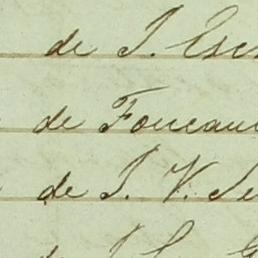 de J. Esc
de Foucau
de J. V. Se
de J.